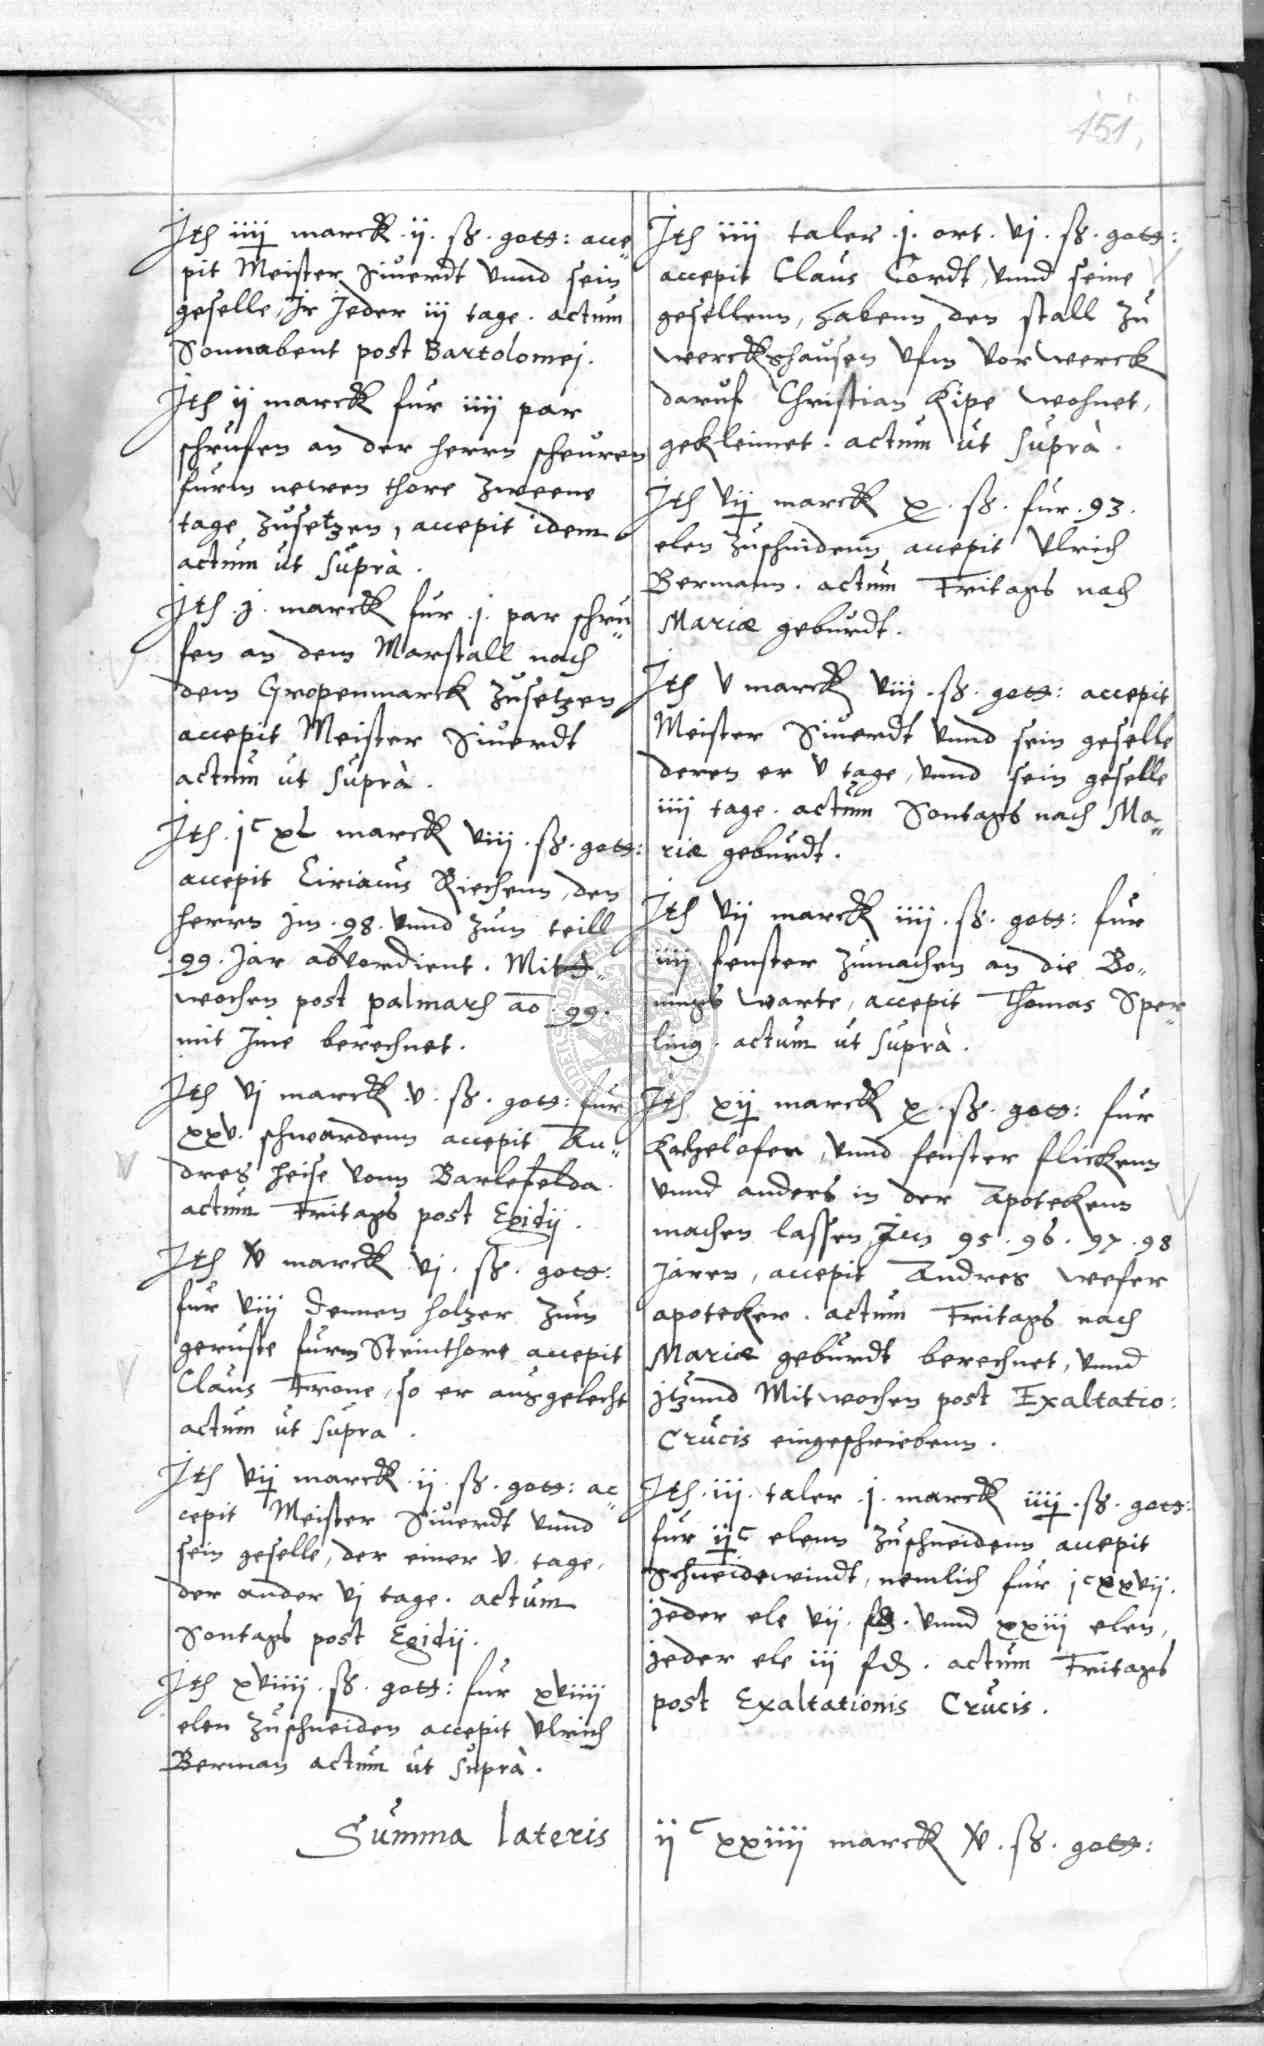 151.
Jth iiij marck . ij . ß . gotts: acce„
pit Meister Siuerdt vnnd sein
geselle, Jr Jeder iij tage . actum
Sonnabent post Bartolomej .
Jth ij marck fur iiij par
schrufen an der herrn scheuren
furm newen thore zweene
tage zusetzen, accepit idem
actum ut suprà .
Jth . j . marck fur . j . par schru„
fen an dem Marstall nach
dem Gropenmarck zusetzen
accepit Meister Siuerdt
actum ut suprà .
Jth . jc xl marck viij . ß . gotts:
accepit Ciriacus Riechenn, den
herrn Jm . 98 . vnnd zum teill
. 99 . Jar abvordient . Mit„
wochen post palmarh ao . 99 .
mit Jme berechnet .
Jth vj marck . v . ß . gotts: fur
xxv . schwardenn accepit An„
dres heise vonn Barlefelda .
actum Fritags post Egidij .
Jth xv marck vj . ß . gotts:
fur viij dennen holtzer zum
geruste furm Steinthore accepit
Claus Frone, so er ausgelecht
actum ut supra .
Jth vij marck . ij . ß . gotts: ac„
cepit Meister Siuerdt vnnd
sein geselle, der einer . v . tage,
der ander vj tage . actum
Sontags post Egidij .
Jth xviiij . ß . gotts: fur xviiij
elen zuschneiden accepit Vlrich
Berman actum ut suprà .
Jth iiij taler . j . ort . vj . ß . gotts:
accepit Claus Cordt, vnnd seine
gesellenn, habenn den stall zu
werckshausen vfm vorwerck
daruf Christian Kipe wohnet,
gekleimet . actum ut suprà .
Jth vij marck x . ß . fur . 93 .
elen zuschnidenn accepit Vlrich
Bermann . actum Fritags nach
Mariæ geburdt .
Jth v marck viij . ß . gotts: accepit
Meister Siuerdt vnnd sein geselle
deren er v tage, vnnd sein geselle
iiij tage . actum Sontags nach Ma„
riæ geburdt .
Jth vij marck iiij . ß . gotts: fur
iiij fenster zumachen an die Bo„
nings warte, accepit Thomas Sper„
ling . actum ut suprà .
Jth xij marck x . ß . gotts: fur
Kachelofen, vnnd fenster flickenn
vnnd anders in der Apotekenn
machen lassen Jnn 95 . 96 . 97 . 98
Jaren, accepit Andres wefer
apoteker . actum Fritags nach
Mariæ geburdt berechnet, vnnd
jtzund Mitwochen post Exaltatio:
Crucis eingeschriebenn .
Jth . iij . taler . j . marck iiij . ß . gotts:
fur ijc elenn zuschneidenn accepit
Schneidewindt, nemlich fur jc xxvij .
jeder ele vij . . vnnd xxiij elen,
jeder ele iij . actum Fritags
post Exaltationis Crucis .
Summa lateris ijc xxiiij marck xv . ß . gotts: